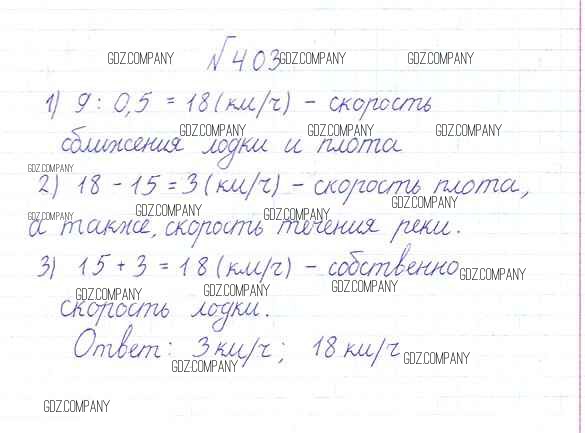 GDZ.COMPANY GDZ.COMPANY GDZ.COMPANY
№403
1) 9 : 0,5 = 18 (км/ч) – скорость
GDZ.COMPANY GDZ.COMPANY GDZ.COMPANY
сближения лодки и плота
GDZ.COMPANY
2) 18 – 15 = 3 (км/ч) – скорость плота,
GDZ.COMPANY GDZ.COMPANY GDZ.COMPANY GDZ.COMPANY
а также, скорость течения реки.
3) 15 + 3 = 18 (км/ч) – собственно
GDZ.COMPANY
GDZ.COMPANY GDZ.COMPANY GDZ.COMPANY
скорость лодки.
Ответ: 3 км/ч; 18 км/ч
GDZ.COMPANY GDZ.COMPANY
GDZ.COMPANY